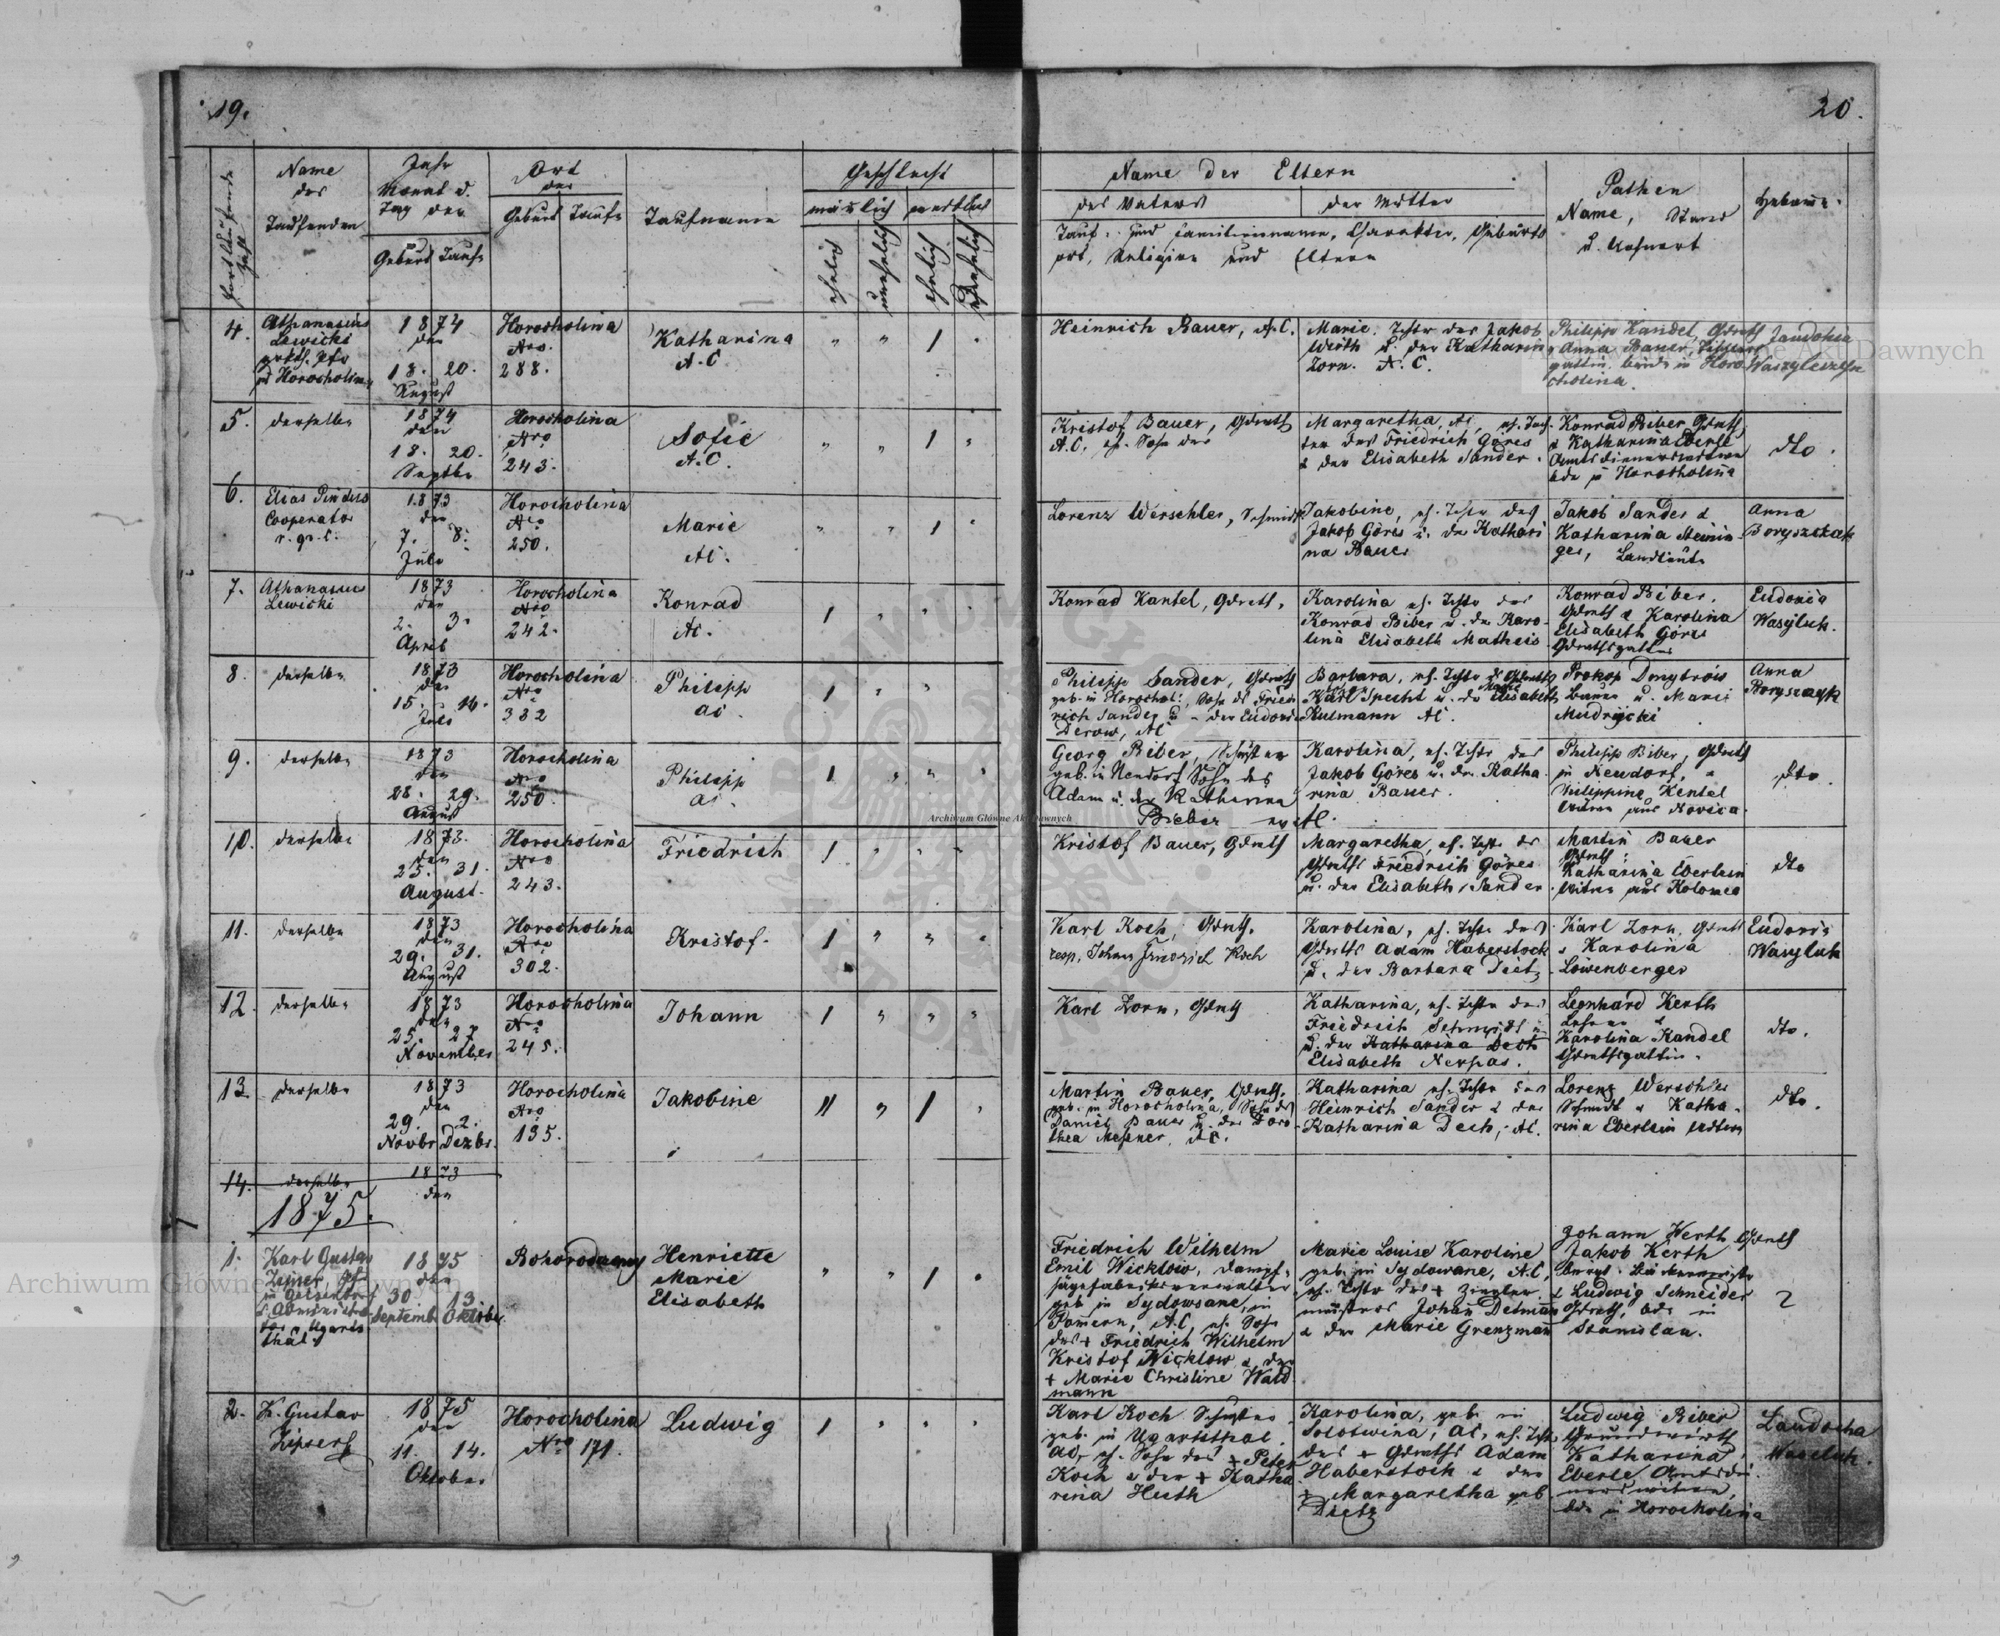 19.
20.
Name
des
Taufenden
Jahr
Monat u.
Tag der
Geburt Taufe
Ort
der
Geburt Taufe
Taufname
Geschlecht
männlich weiblich
ehelich
unehelich
ehelich
unehelich
Name der Eltern
des Vaters
der Mutter
Tauf- und Familienname, Charakter, Geburts
ort, Religion und Eltern
Pathen
Name, Stand
u. Wohnort
Hebamme.
4. Athanasius
Lewicki
1874
den
18. 20.
August
Horocholina
Nro
288.
Katharina
A. C.
Heinrich Bauer, A. C.
Marie, Tochter des Jakob
Werth u. der Katharina
Zorn. A. C.
Philipp Kandel,
Anna Bauer
beide in Horo-
cholina.
5. derselbe
1874
den
18. 20.
Septbr
Horocholina
Nro
243.
Sofie
A. C.
Kristof Bauer, Gdrwth
A. C. eh. Sohn des
Margaretha, AC, eh. Toch-
ter des Friedrich Göres
& der Elisabeth Sander.
Konrad Biber Gdrwth
& Katharina Eberle
bde in Horocholina
dto.
6. Elias Pindus
Cooperator
r. gr. c.
1873
den
7. 8.
July
Horocholina
Nro
250.
Marie
AC.
Lorenz Werschler, Schmidt
Jakobine, eh. Tochter des
Jakob Göres u. der Kathari
na Bauer
Jakob Sander &
Katharina Steinin-
ger, Landleute
Anna
Boryszczak
7. Athanasius
Lewicki
1873
den
2. 3.
April
Horocholina
Nro
242.
Konrad
AC.
Konrad Kantel, Gdrwth.
Karolina eh. Tochter des
Konrad Biber u. der Karo-
lina Elisabeth Matheis
Konrad Biber,
Gdrwth & Karolina
Elisabeth Göres
Gdrwthsgattin
Eudoxia
Wasyluk.
8. derselbe
1873
den
15. 16.
July
Horocholina
Nro
332
Philipp
AC.
Philipp Sander, Gdrwth
geb. in Horochol: Sohn des Fried
rich Sander u. der
AC
Barbara, eh. Tochter des Gdrwths
Karl Specht u. der Elisabeth
Kulmann AC.
Prokop Dmytrów
Bauer u. Marie
Mudrycki
Anna
Boryszczak
9. derselbe
1873
den
28. 29.
August
Horocholina
Nro
250.
Philipp
AC.
Georg Biber, Schuster
geb. in Neudorf Sohn des
Adam u. der Katharina
Bieber
Karolina, eh. Tochter des
Jakob Göres u. der Katha-
rina Bauer.
Philipp Biber, Gdrwth
in Neudorf, &
Philippine Kentel
Witwe aus Novica.
dto.
10. derselbe
1873.
den
25. 31.
August.
Horocholina
Nro
243.
Friedrich
Kristof Bauer, Gdrwth
Margaretha, eh. Tochter des
Gdrwths Friedrich Göres
u. der Elisabeth Sander
Martin Bauer
Gdrwth;
Katharina Eberlein
Witwe aus Kolomea
dto
11. derselbe
1873
den
29. 31.
August
Horocholina
Nro
302.
Kristof.
Karl Koch, Gdrwth.
resp. Johann Friedrich Koch
Karolina, eh. Tochter des
Gdrwths Adam Haberstock
u. der Barbara Dietz
Karl Zorn, Gdrwth
& Karolina
Löwenberger
Eudoxia
Wasyluk
12. derselbe
1873
den
25. 27
November
Horocholina
Nro
245.
Johann
Karl Zorn, Gdrwth
Katharina, eh. Tochter des
Friedrich Schmidt
u. der Katharina Dech
Elisabeth Nerpas.
Leonhard Kerth
Lehrer &
Karolina Kandel
Gdrwthsgattin.
dto.
13. derselbe
1873
den
29. 2.
Novbr Dezbr.
Horocholina
Nro
135.
Jakobine
Martin Bauer, Gdrwth.
geb. in Horocholina, Sohn des
Daniel Bauer u. der Doro-
thea Messner, AC.
Katharina eh. Tochter des
Heinrich Sander & der
Katharina Dech, AC.
Lorenz Werschler
Schmidt & Katha-
rina Eberlein Witwe
dto.
14. derselbe
1873
den
1875.
1. Karl Gustav
1875
den
30 13
Septemb Oktober
Bohorodczany
Henriette
Marie
Elisabeth
Friedrich Wilhelm
Emil Wicklow, Dampf-
sägefabriksverwalter
geb in Sydowsane, in
Pomern, AC, eh. Sohn
des + Friedrich Wilhelm
Kristof Wicklow & der
+ Marie Christine Wald
mann
Marie Louise Karoline
geb. in Sydowane, A.C,
eh. Tochter des + Ziegler-
meisters Johan Detman
& der Marie Grenzman
Johann Werth Gdrwth
Jakob Kerth
& Ludwig Schneider
Gdrwth, bde in
Stanislau.
?
2. K. Gustav
Zipser
1875
den
11. 14.
Oktober
Horocholina
Nro 171.
Ludwig
Karl Koch Schuster
geb. in Ugartsthal
AC, eh. Sohn des + Peter
Koch & der + Katha
rina Huth
Karolina, geb. in
Solotwina, AC, eh. Tochter
des + Gdrwths Adam
Haberstock & der
+ Margaretha geb
Dietz
Ludwig Biber
Grundwirth
Katharina
Eberle Amtsdie-
nerswitwe,
bde in Horocholina
Archiwum Główne Akt Dawnych
Archiwum Główne Akt Dawnych
Akt Dawnych